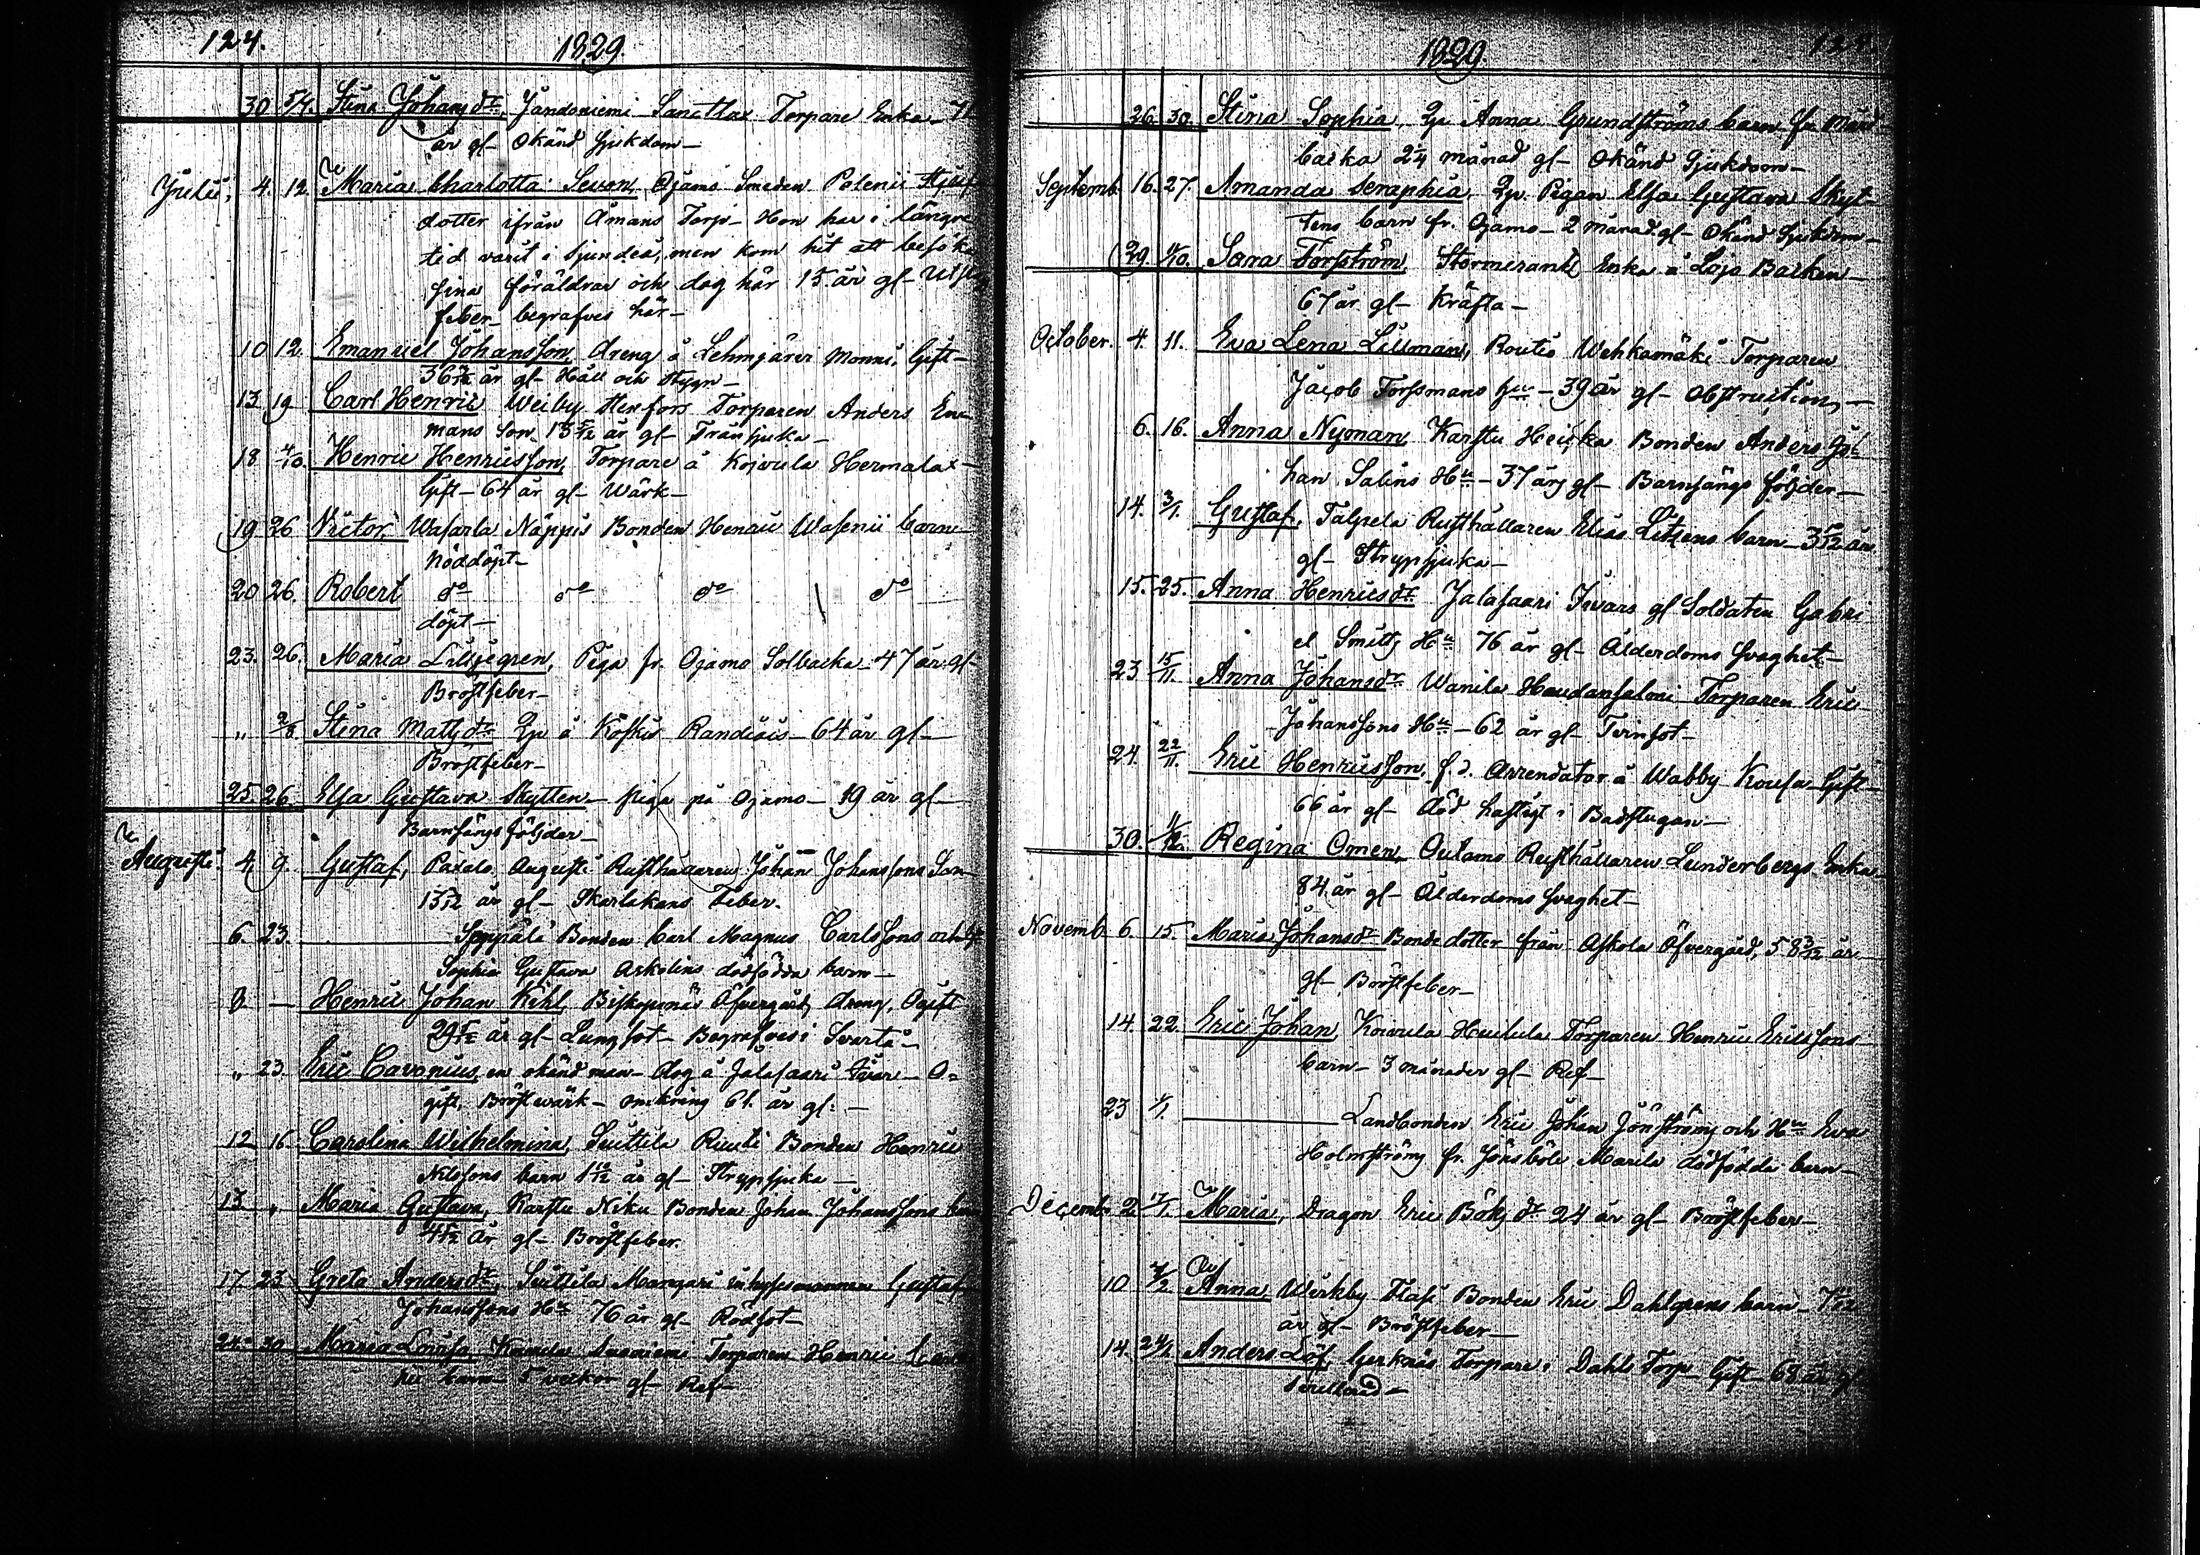 124.
1829.
30 5/7. Stina Johansdr. Jandoniemi Torpare Enka
år gl- Okänd Sjukdom-
Julii, 4. 12 Maria Charlotta Sevon, Ojamo Smeden Polenii
dotter ifrån Åmans Torp- Hon har i längre
tid varit i Sjundeå, men kom hit att besöka
sina föräldrar och dog här 15 år gl-
feber- begrafves här-
10 12. Emanuel Johansson, dreng å Lehmjärvi Monni, Gift-
år gl- Håll och styng-
13 19 Carl Henric Weiby Torparen Anders
mans Son 13 5/12 år gl- Tränsjuka-
18 4/10. Henric Henricsson, Torpare å Koivula Hermala
Gift- 64 år gl- Wärk-
19 26 Victor, Wasarla Näppis Bonden Henric Wasenii barn
nöddöpt-
20 26. Robert do do do do
döpt-
23. 26. Maria Liljegren, Piga fr. Ojamo Solbacka- 47 år gl-
Bröstfeber-
" 2/8. Stina Mattsdr. å Köskis 64 år gl-
Bröstfeber-
25 26 Elsa Gustava Skytten- piga på Ojamo- år gl-
Barnsängs följder-
Augusti. 4. 9. Gustaf, Paxalo Rusthållaren Johan Johanssons Son
år gl- Skarlakans Feber.
6. 23. Bonden Carl Magnus Carlssons och
Sophia Gustava Askolins dödfödda barn-
8 - Henric Johan Kihl, Biskopsnäs Öfvergård, dreng, Ogift
år gl- Lungsot- Begrafves i Svartå-
" 23. Eric Cavonius, en okänd man- dog å Jalasaari Ivar- O=
gift, Bröstwärk- omkring 61. år gl:-
12 16 Carolina Wilhelmina, Suittila Ruuti Bonden Henric
Nilssons barn år gl- Strypsjuka-
13. " Maria Gustava, Karstu Niku Bonden Johan Johanssons
4 5/12 år gl- Bröstfeber.
17 23 Greta Andersdr. Suittila Mangari Gustaf
Johanssons Hu 76 år gl- Rödsot-
24 30 Maria Lovisa, Torparen Henric
barn 5 veckor gl- Ref-
1829.
26. 30. Stina Sophia, Anna Grundströms barn fr.
backa 2 1/4 månad gl- Okänd Sjukdom-
Septemb 16. 27. Amanda Seraphia, Pigan Elsa Gustava Skyt-
tens barn fr. Ojamo- 2 månad gl- Okänd Sjukdom-
29. Sara Forsström Enka å Lojo Backen-
67 år gl- Kräfta-
October. 4. 11. Eva Lena Lillman, Routio Wehkamäki Torparen
Jacob Forssmans hu- 39 år gl- Obstruction-
6. 16. Anna Nyman, Karstu Heicka Bonden Anders Jo
han Salins Hu- 37 år gl- Barnsängs följder-
14. Gustaf, Talpela Rusthållaren Elias barn- 3 5/12 år
gl- Strypsjuka-
15. 25. Anna Henricsdr. Jalasaari Ivars gl Soldaten Gabri
el Smitts Hu 76 år gl- Ålderdoms svaghet-
23 15/11. Anna Johansdr. Wanila Haudansalmi Torparen Eric
Johanssons Hu- 62 år gl- Tvinsot-
24. 22/11. Eric Henricsson, f.d. Arrendator å Wabby Koufa- Gift-
66 år gl- död hastigt i Badstugan-
30. Regina Omen, Outamo Rusthållaren Lunderbergs Enka-
84 år gl- Ålderdoms svaghet-
Novemb 6. 15. Maria Johansdr. Bonde dotter från Askola Öfvergård, 58 3/12 år
gl- Bröstfeber-
14 22. Eric Johan, Koivula Huilula Torparen Henric Ericssons
barn- 3 månader gl- Ref-
23 Landbonden Eric Johan Jönström och Hu Eva
Holmström fr. Jönsböle Marila dödfödda barn-
Decemb. 2 Maria, Dragon Eric Böks dr 24 år gl- Bröstfeber-
10 Anna, Wirkby Bonden Eric Dahlgrens barn-
år gl- Bröstfeber-
14. Anders Löf, Gerknäs Torpare i Dahls Torp- Gift- 68 år gl